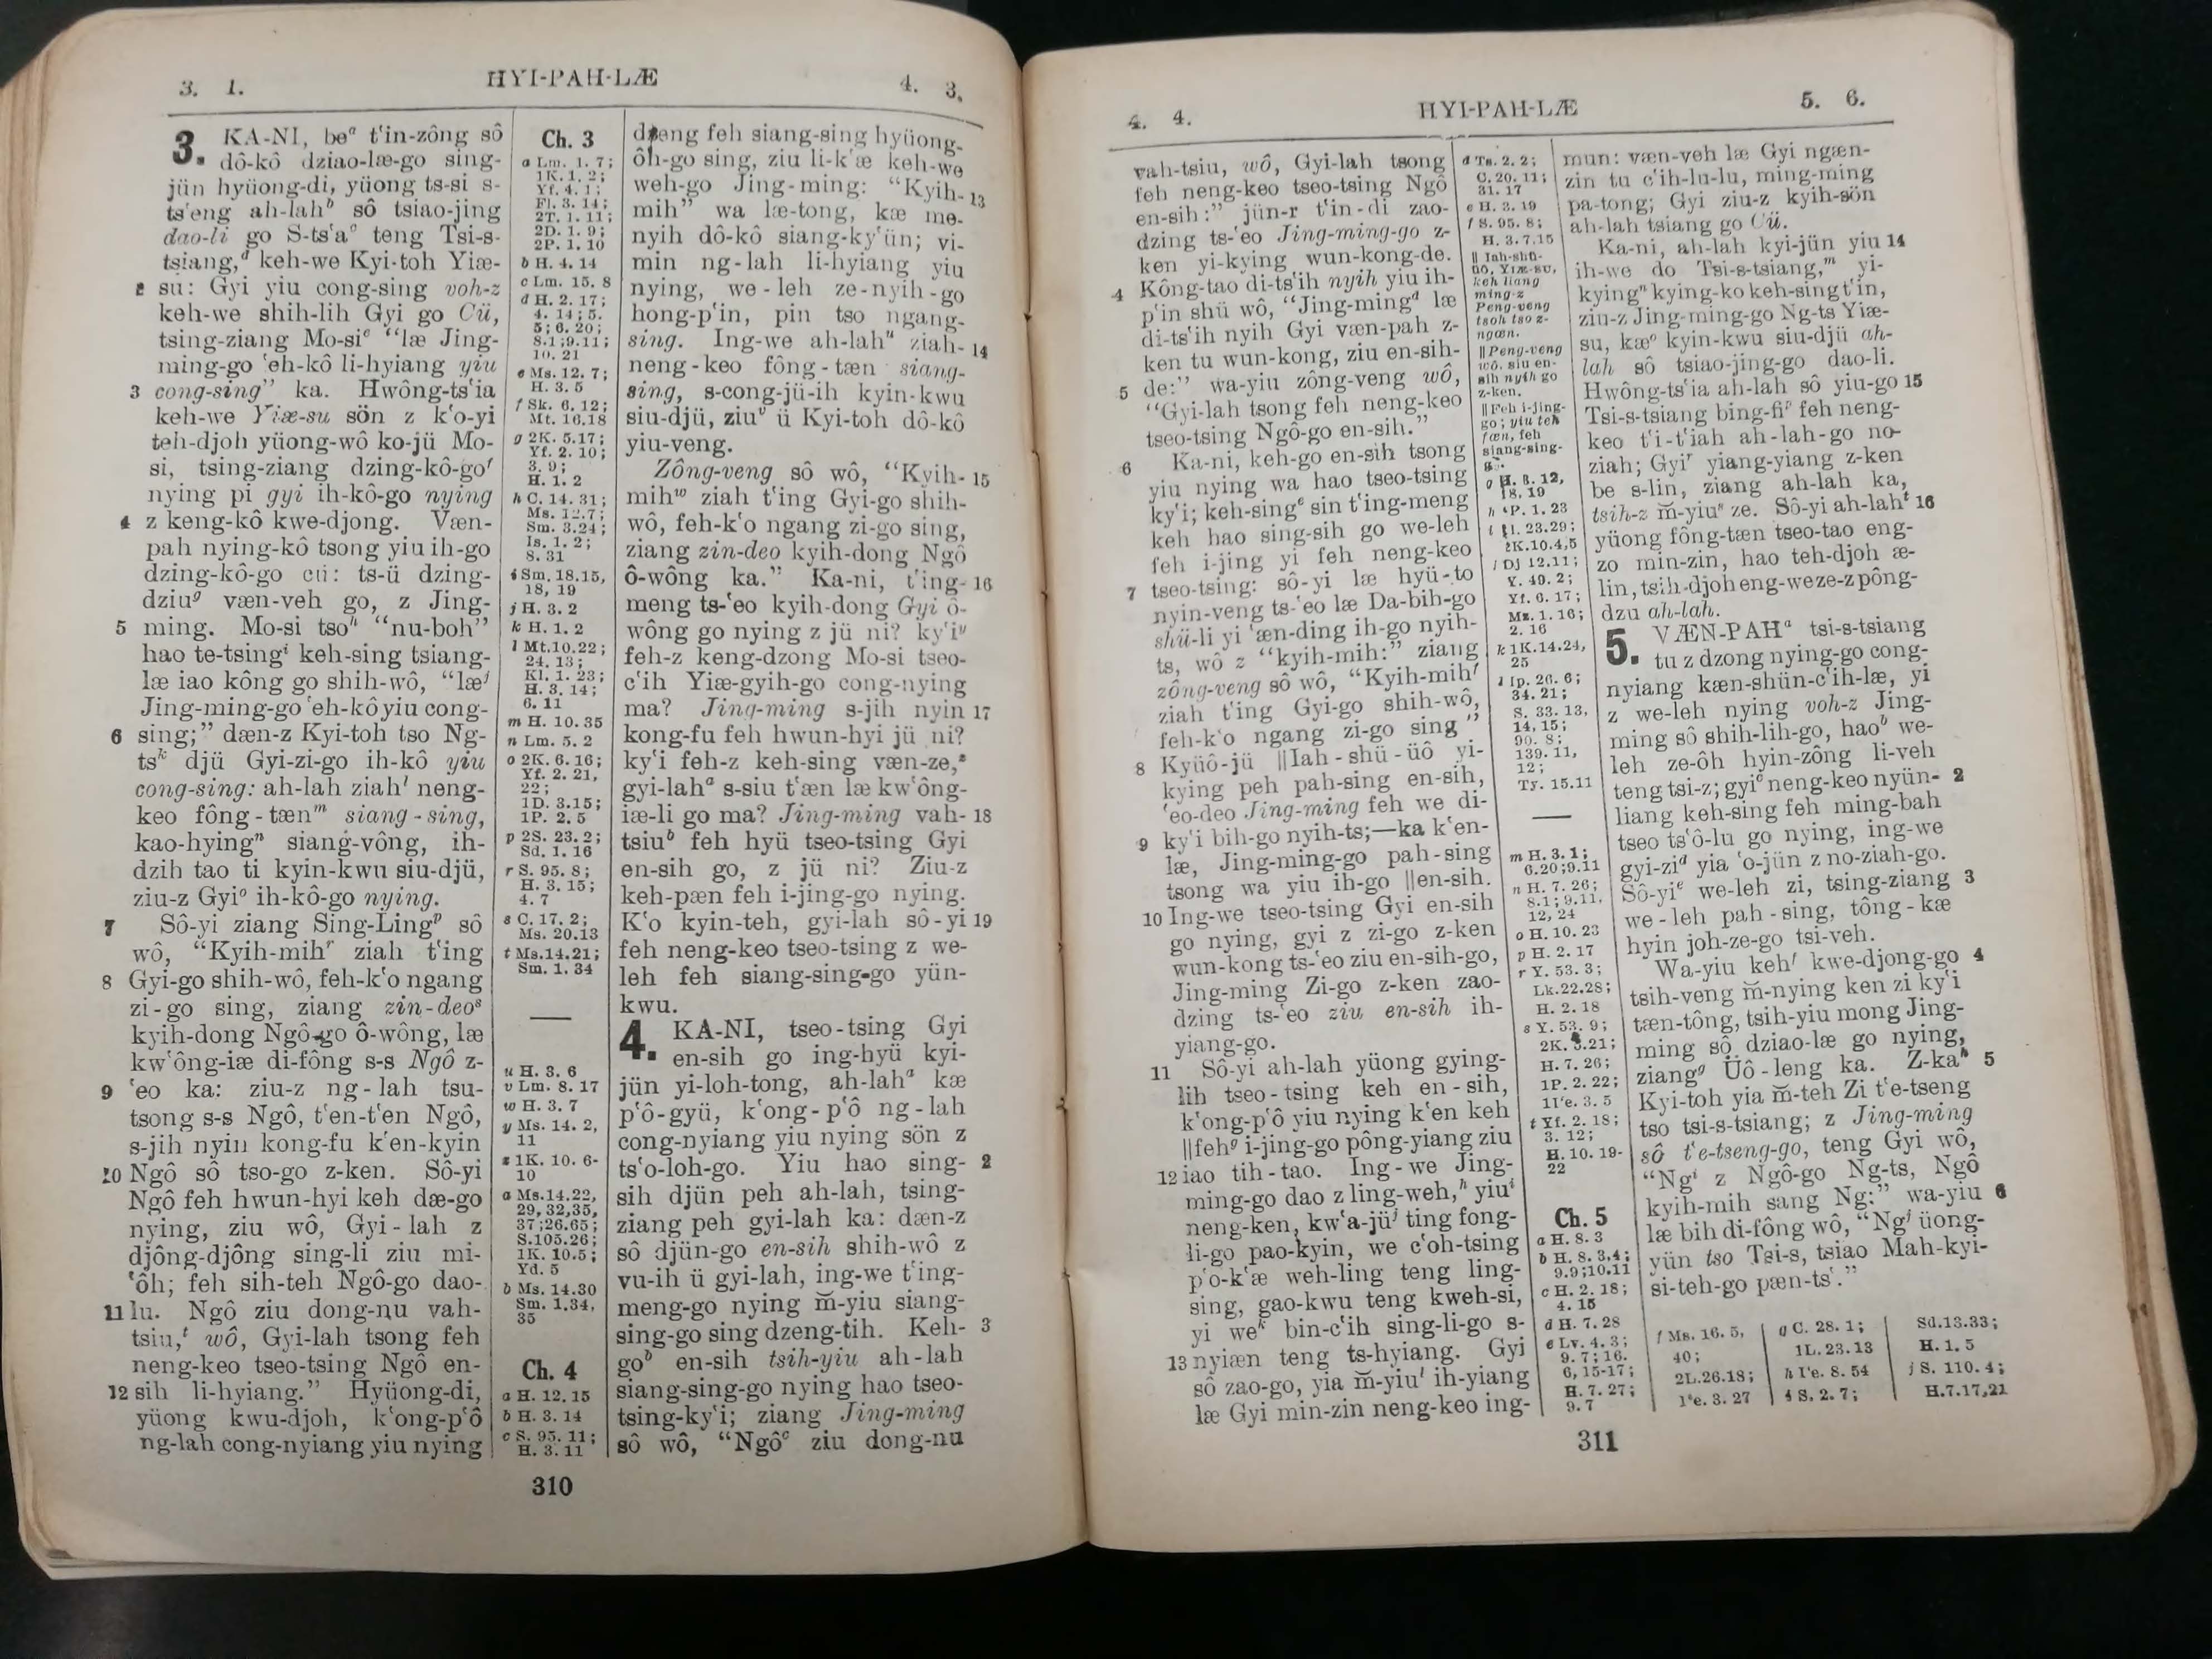 3. 1.
HYI-PAH-LÆ
4. 3.
3. KA-NI, beᵃ t‘in-zông sô
dô-kô dziao-læ-go sing-
jün hyüong-di, yüong ts-si s-
ts‘eng ah-lahᵇ sô tsiao-jing
dao-li go S-ts‘aᶜ teng Tsi-s-
tsiang,ᵈ keh-we Kyi-toh Yiæ-
2 su: Gyi yiu cong-sing voh-z
keh-we shih-lih Gyi go Cü,
tsing-ziang Mo-siᵉ “læ Jing-
ming-go ‘eh-kô li-hyiang yiu
3 cong-sing” ka. Hwông-ts‘ia
keh-we Yiæ-su sön z k‘o-yi
teh-djoh yüong-wô ko-jü Mo-
si, tsing-ziang dzing-kô-goᶠ
nying pi gyi ih-kô-go nying
4 z keng-kô kwe-djong. Væn-
pah nying-kô tsong yiu ih-go
dzing-kô-go cü: ts-ü dzing-
dziuᵍ væn-veh go, z Jing-
5 ming. Mo-si tsoʰ “nu-boh”
hao te-tsingⁱ keh-sing tsiang-
læ iao kông go shih-wô, “læʲ
Jing-ming-go ‘eh-kô yiu cong-
6 sing;” dæn-z Kyi-toh tso Ng-
tsᵏ djü Gyi-zi-go ih-kô yiu
cong-sing: ah-lah ziahˡ neng-
keo fông-tænᵐ siang-sing,
kao-hyingⁿ siang-vông, ih-
dzih tao ti kyin-kwu siu-djü,
ziu-z Gyiᵒ ih-kô-go nying.
7 Sô-yi ziang Sing-Lingᵖ sô
wô, “Kyih-mihʳ ziah t‘ing
8 Gyi-go shih-wô, feh-k‘o ngang
zi-go sing, ziang zin-deoˢ
kyih-dong Ngô-go ô-wông, læ
kw‘ông-iæ di-fông s-s Ngô z-
9 ‘eo ka: ziu-z ng-lah tsu-
tsong s-s Ngô, t‘en-t‘en Ngô,
s-jih nyin kong-fu k‘en-kyin
10 Ngô sô tso-go z-ken. Sô-yi
Ngô feh hwun-hyi keh dæ-go
nying, ziu wô, Gyi-lah z
djông-djông sing-li ziu mi-
‘ôh; feh sih-teh Ngô-go dao-
11 lu. Ngô ziu dong-nu vah-
tsiu,ᵗ wô, Gyi-lah tsong feh
neng-keo tseo-tsing Ngô en-
12 sih li-hyiang.” Hyüong-di,
yüong kwu-djoh, k‘ong-p‘ô
ng-lah cong-nyiang yiu nying
Ch. 3
a Lm. 1. 7;
1K. 1. 2;
Yf. 4. 1;
Fl. 3. 14;
2T. 1. 11;
2D. 1. 9;
2P. 1. 10
b H. 4. 14
c Lm. 15. 8
d H. 2. 17;
4. 14; 5.
5; 6. 20;
8.1; 9.11;
10. 21
e Ms. 12. 7;
H. 3. 5
f Sk. 6. 12;
Mt. 16.18
g 2K. 5.17;
Yf. 2. 10;
3. 9;
H. 1. 2
h C. 14. 31;
Ms. 12.7;
Sm. 3.24;
Is. 1. 2;
8. 31
i Sm. 18.15,
18, 19
j H. 3. 2
k H. 1. 2
l Mt.10.22;
24. 13;
Kl. 1. 23;
H. 3. 14;
6. 11
m H. 10. 35
n Lm. 5. 2
o 2K. 6.16;
Yf. 2. 21,
22;
1D. 3.15;
1P. 2. 5
p 2S. 23. 2;
Sd. 1. 16
r S. 95. 8;
H. 3. 15;
4. 7
s C. 17. 2;
Ms. 20.13
t Ms.14.21;
Sm. 1. 34
u H. 3. 6
v Lm. 8. 17
w H. 3. 7
y Ms. 14. 2,
11
z 1K. 10. 6-
10
a Ms.14.22,
29, 32,35,
37;26.65;
S.105.26;
1K. 10.5;
Yd. 5
b Ms. 14.30
Sm. 1.34,
35
Ch. 4
a H. 12. 15
b H. 3. 14
c S. 95. 11;
H. 3. 11
dzeng feh siang-sing hyüong-
ôh-go sing, ziu li-k‘æ keh-we
weh-go Jing-ming: “Kyih- 13
mih” wa læ-tong, kæ me-
nyih dô-kô siang-ky‘ün; vi-
min ng-lah li-hyiang yiu
nying, we-leh ze-nyih-go
hong-p‘in, pin tso ngang-
sing. Ing-we ah-lahᵘ ziah- 14
neng-keo fông-tæn siang-
sing, s-cong-jü-ih kyin-kwu
siu-djü, ziuᵛ ü Kyi-toh dô-kô
yiu-veng.
Zông-veng sô wô, “Kyih- 15
mihʷ ziah t‘ing Gyi-go shih-
wô, feh-k‘o ngang zi-go sing,
ziang zin-deo kyih-dong Ngô
ô-wông ka.” Ka-ni, t‘ing- 16
meng ts-‘eo kyih-dong Gyi ô-
wông go nying z jü ni? ky‘iʸ
feh-z keng-dzong Mo-si tseo-
c‘ih Yiæ-gyih-go cong-nying
ma? Jing-ming s-jih nyin 17
kong-fu feh hwun-hyi jü ni?
ky‘i feh-z keh-sing væn-ze,ᶻ
gyi-lahᵃ s-siu t‘æn læ kw‘ông-
iæ-li go ma? Jing-ming vah- 18
tsiuᵇ feh hyü tseo-tsing Gyi
en-sih go, z jü ni? Ziu-z
keh-pæn feh i-jing-go nying.
K‘o kyin-teh, gyi-lah sô-yi 19
feh neng-keo tseo-tsing z we-
leh feh siang-sing-go yün-
kwu.
4. KA-NI, tseo-tsing Gyi
en-sih go ing-hyü kyi-
jün yi-loh-tong, ah-lahᵃ kæ
p‘ô-gyü, k‘ong-p‘ô ng-lah
cong-nyiang yiu nying sön z
ts‘o-loh-go. Yiu hao sing- 2
sih djün peh ah-lah, tsing-
ziang peh gyi-lah ka: dæn-z
sô djün-go en-sih shih-wô z
vu-ih ü gyi-lah, ing-we t‘ing-
meng-go nying m̆-yiu siang-
sing-go sing dzeng-tih. Keh- 3
goᵇ en-sih tsih-yiu ah-lah
siang-sing-go nying hao tseo-
tsing-ky‘i; ziang Jing-ming
sô wô, “Ngôᶜ ziu dong-nu
310
4. 4.
HYI-PAH-LÆ
5. 6.
vah-tsiu, wô, Gyi-lah tsong
feh neng-keo tseo-tsing Ngô
en-sih:” jün-r t‘in-di zao-
dzing ts-‘eo Jing-ming-go z-
ken yi-kying wun-kong-de.
4 Kông-tao di-ts‘ih nyih yiu ih-
p‘in shü wô, “Jing-mingᵈ læ
di-ts‘ih nyih Gyi væn-pah z-
ken tu wun-kong, ziu en-sih-
5 de:” wa-yiu zông-veng wô,
“Gyi-lah tsong feh neng-keo
tseo-tsing Ngô-go en-sih.”
6 Ka-ni, keh-go en-sih tsong
yiu nying wa hao tseo-tsing
ky‘i; keh-singᵉ sin t‘ing-meng
keh hao sing-sih go we-leh
feh i-jing yi feh neng-keo
7 tseo-tsing: sô-yi læ hyü-to
nyin-veng ts-‘eo læ Da-bih-go
shü-li yi ‘æn-ding ih-go nyih-
ts, wô z “kyih-mih:” ziang
zông-veng sô wô, “Kyih-mihᶠ
ziah t‘ing Gyi-go shih-wô,
feh-k‘o ngang zi-go sing”
8 Kyüô-jü ‖Iah-shü-üô yi-
kying peh pah-sing en-sih,
‘eo-deo Jing-ming feh we di-
9 ky‘i bih-go nyih-ts;—ka k‘en-
læ, Jing-ming-go pah-sing
tsong wa yiu ih-go ‖en-sih.
10 Ing-we tseo-tsing Gyi en-sih
go nying, gyi z zi-go z-ken
wun-kong ts-‘eo ziu en-sih-go,
Jing-ming Zi-go z-ken zao-
dzing ts-‘eo ziu en-sih ih-
yiang-go.
11 Sô-yi ah-lah yüong gying-
lih tseo-tsing keh en-sih,
k‘ong-p‘ô yiu nying k‘en keh
‖fehᵍ i-jing-go pông-yiang ziu
12 iao tih-tao. Ing-we Jing-
ming-go dao z ling-weh,ʰ yiuⁱ
neng-ken, kw‘a-jüʲ ting fong-
li-go pao-kyin, we c‘oh-tsing
p‘o-k‘æ weh-ling teng ling-
sing, gao-kwu teng kweh-si,
yi weᵏ bin-c‘ih sing-li-go s-
13 nyiæn teng ts-hyiang. Gyi
sô zao-go, yia m̆-yiuˡ ih-yiang
læ Gyi min-zin neng-keo ing-
d Ts. 2. 2;
C. 20. 11;
31. 17
e H. 3. 19
f S. 95. 8;
H. 3.7.15
‖ Iah-shü-
üô, Yiæ-su,
keh liang
ming-z
Peng-veng
tsoh tso z-
ngæn.
‖ Peng-veng
wô, siu en-
sih nyih go
z-ken.
‖ Feh i-jing-
go; yiu teh
fæn, feh
siang-sing-
g H. 3. 12,
18, 19
h 1P. 1. 23
2K.10.4,5
j DJ 12.11;
Y. 49. 2;
Yf. 6. 17;
Ms. 1. 16;
2. 16
k 1K.14.24,
25
34. 21;
S. 33. 13,
14, 15;
90. 8;
139. 11,
12;
Ty. 15.11
m H. 3. 1;
6.20; 9.11
n H. 7. 26;
8.1; 9.11,
12, 24
o H. 10. 23
p H. 2. 17
r Y. 53. 3;
Lk.22.28;
H. 2. 18
s Y. 53. 9;
2K. 5.21;
H. 7. 26;
1P. 2. 22;
t Yf. 2. 18;
3. 12;
H. 10. 19-
22
Ch. 5
a H. 8. 3
b H. 8. 3.4;
9.9;10.11
c H. 2. 18;
4. 15
d H. 7. 28
e Lv. 4. 3;
9. 7; 16.
6, 15-17;
H. 7. 27;
9. 7
mun: væn-veh læ Gyi ngæn-
zin tu c‘ih-lu-lu, ming-ming
pa-tong; Gyi ziu-z kyih-sön
ah-lah tsiang go Cü.
Ka-ni, ah-lah kyi-jün yiu 14
ih-we do Tsi-s-tsiang,ᵐ yi-
kyingⁿ kying-ko keh-sing t‘in,
ziu-z Jing-ming-go Ng-ts Yiæ-
su, kæᵒ kyin-kwu siu-djü ah-
lah sô tsiao-jing-go dao-li.
Hwông-ts‘ia ah-lah sô yiu-go 15
Tsi-s-tsiang bing-fiᵖ feh neng-
keo t‘i-t‘iah ah-lah-go no-
ziah; Gyiʳ yiang-yiang z-ken
be s-lin, ziang ah-lah ka,
tsih-z m̆-yiuˢ ze. Sô-yi ah-lahᵗ 16
yüong fông-tæn tseo-tao eng-
zo min-zin, hao teh-djoh æ-
lin, tsih-djoh eng-we ze-z pông-
dzu ah-lah.
5. VÆN-PAHᵃ tsi-s-tsiang
tu z dzong nying-go cong-
nyiang kæn-shün-c‘ih-læ, yi
z we-leh nying voh-z Jing-
ming sô shih-lih-go, haoᵇ we-
leh ze-ôh hyin-zông li-veh
teng tsi-z; gyiᶜ neng-keo nyün- 2
liang keh-sing feh ming-bah
tseo ts‘ô-lu go nying, ing-we
gyi-ziᵈ yia ‘o-jün z no-ziah-go.
Sô-yiᵉ we-leh zi, tsing-ziang 3
we-leh pah-sing, tông-kæ
hyin joh-ze-go tsi-veh.
Wa-yiu kehᶠ kwe-djong-go 4
tsih-veng m̆-nying ken zi ky‘i
tæn-tông, tsih-yiu mong Jing-
ming sô dziao-læ go nying,
ziangᵍ Üô-leng ka. Z-kaʰ 5
Kyi-toh yia m̆-teh Zi t‘e-tseng
tso tsi-s-tsiang; z Jing-ming
sô t‘e-tseng-go, teng Gyi wô,
“Ngⁱ z Ngô-go Ng-ts, Ngô
kyih-mih sang Ng:” wa-yiu 6
læ bih di-fông wô, “Ngʲ üong-
yün tso Tsi-s, tsiao Mah-kyi-
si-teh-go pæn-ts‘.”
f Ms. 16. 5,
40;
2L.26.18;
1‘e. 3. 27
g C. 28. 1;
1L. 23. 13
h I‘e. 8. 54
i S. 2. 7;
Sd.13.33;
H. 1. 5
j S. 110. 4;
H.7.17,21
311